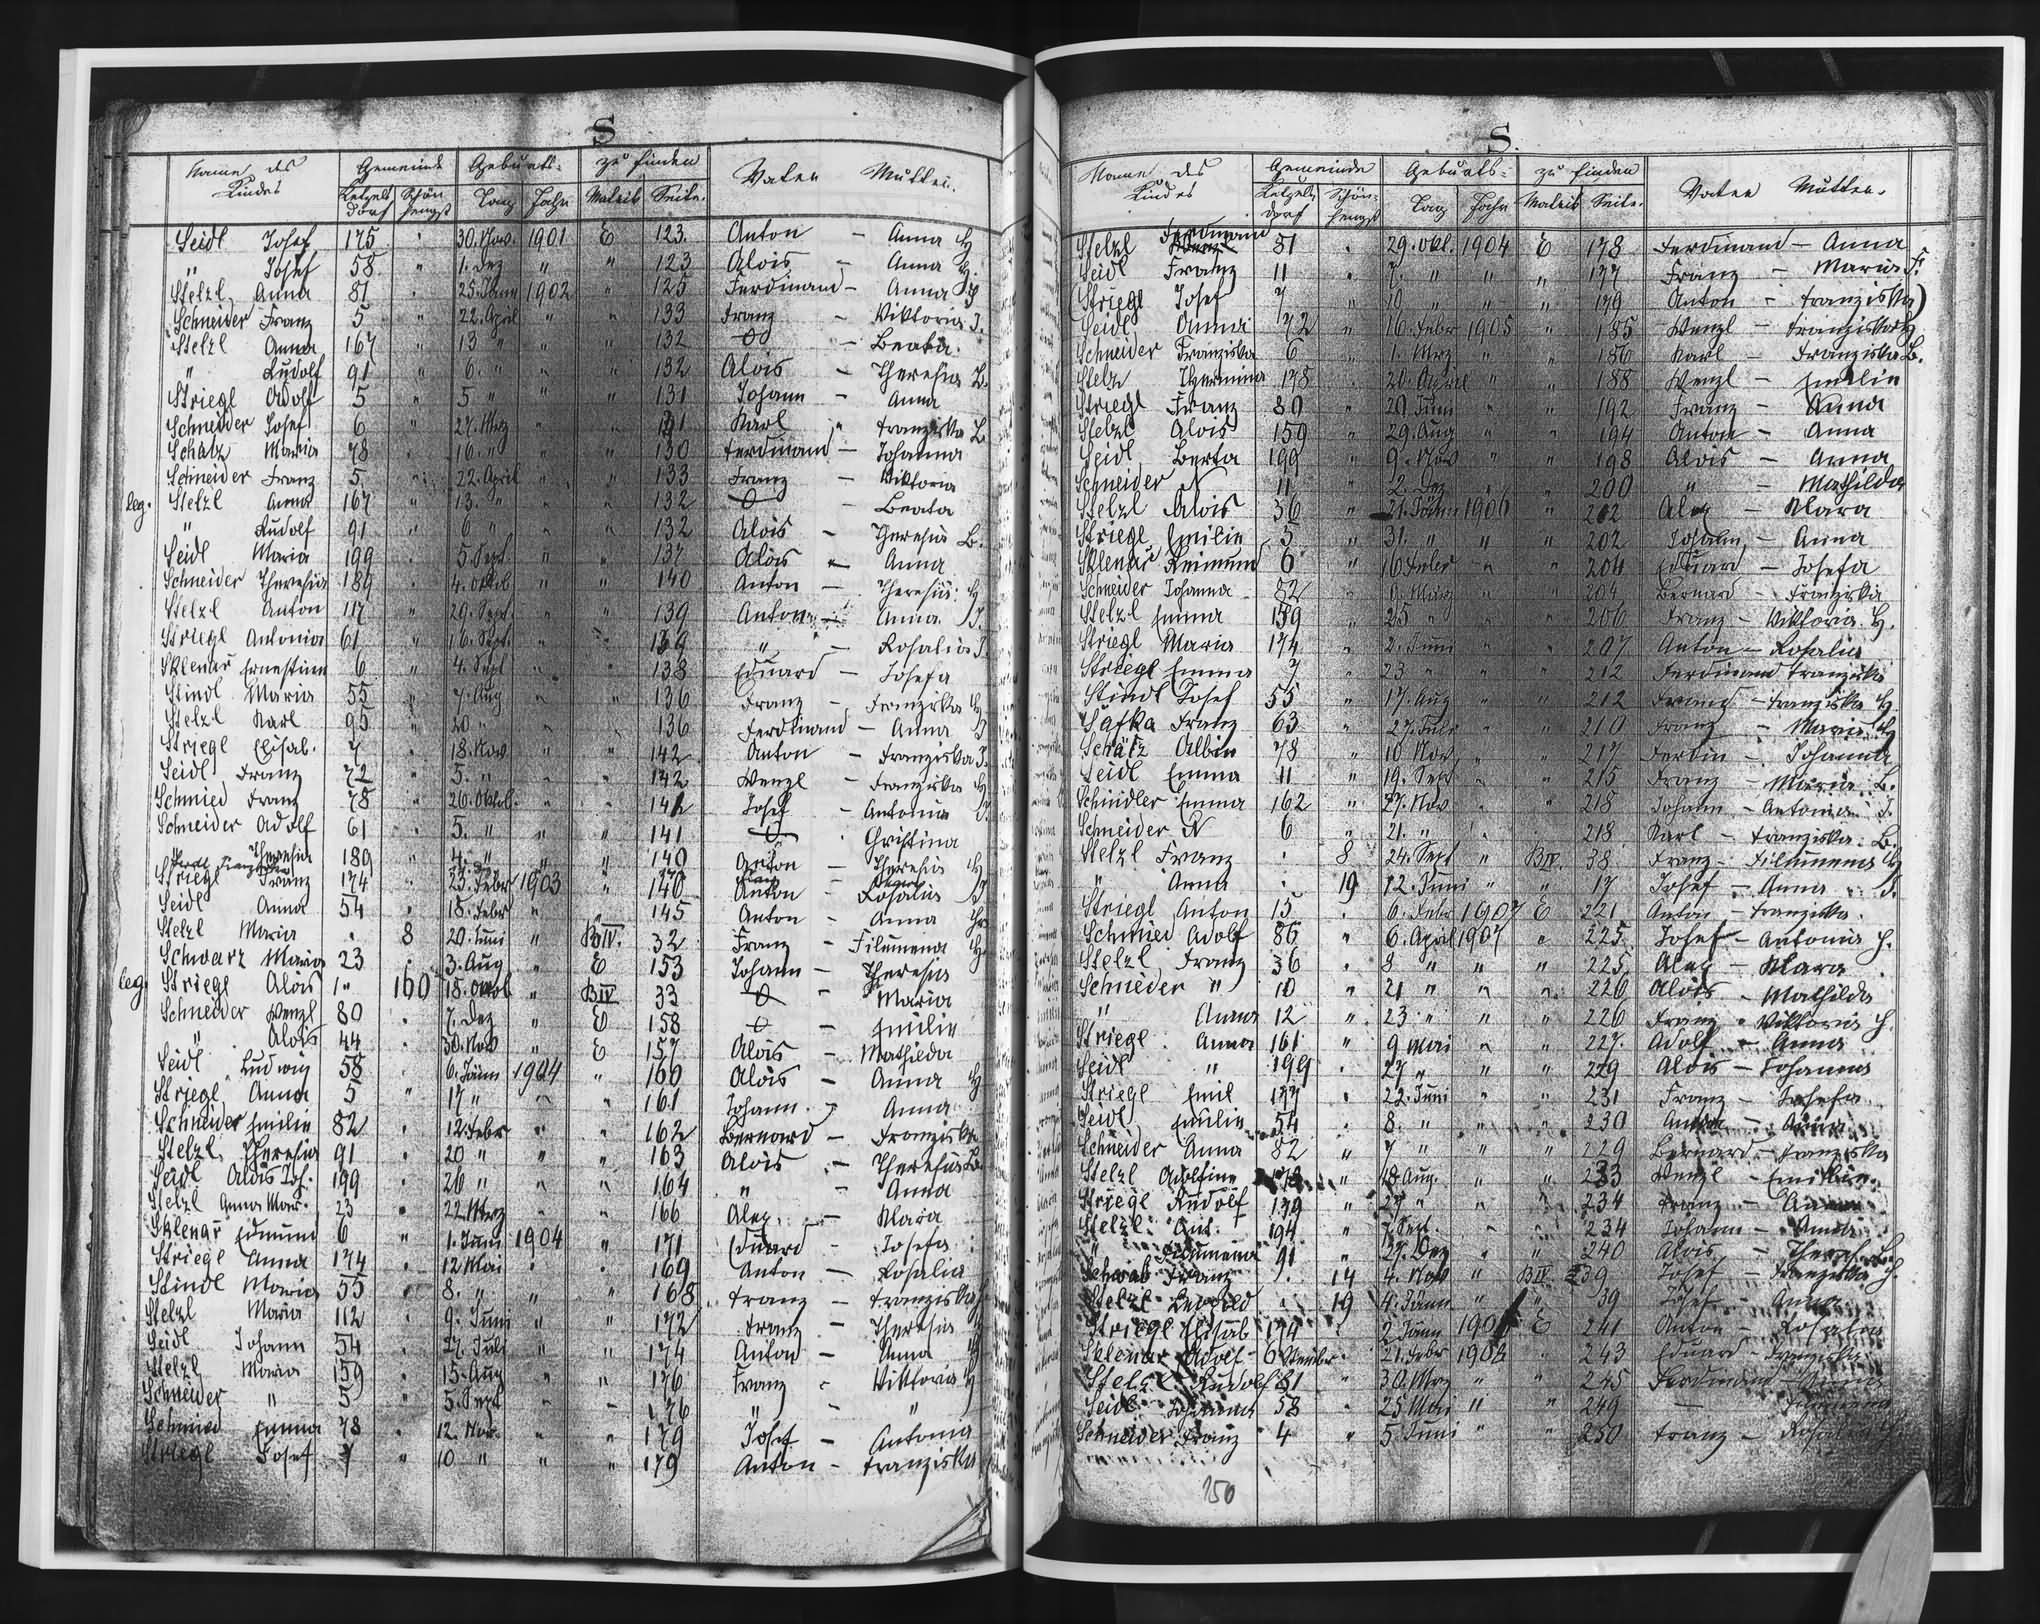 S
Name des Kindes Gemeinde Geburts- zu finden Vater Mutter.
Ketzelsdorf Schönhengst Tag Jahr Matrik Seite.
Seidl Josef 175 " 30. Nov. 1901 E 123. Anton – Anna H
" Josef 58 " 1. Dez " " 123 Alois – Anna H.
Stelzl Anna 81 . 25. Jänn 1902 " 125 Ferdinand – Anna
Schneider Franz 5 " 22. April " " 133 Franz – Viktoria J.
Stelzl Anna 167 " 13 " " " 132 O – Beata.
" Rudolf 91 " 6. " " " 132 Alois – Theresia B.
Striegl Adolf 5 " 5 " " " 131 Johann – Anna
Schneider Josef 6 " 27. Mrz " " 131 Karl " Franziska B
Schätz Maria 78 . 16. " " " 130 Ferdinand – Johanna
Schneider Franz 5. " 22. April " " 133 Franz – Viktoria
leg. Stelzl Anna 167 " 13. " " " 132 O – Beata
" Rudolf 91 " 6 " " " 132 Alois – Theresia B.
Seidl Maria 199 . 5. Sept. " " 137 Alois – Anna
Schneider Theresia 189 . 4. Oktob " " 140 Anton – Theresia H
Stelzl Anton 117 " 29. Sept. " " 139 Anton – Anna J.
Striegl Antonia 61 " 16. Sept. " " 139 " – Rosalia J.
Sklenař Ernestine 6 " 4. Sept " " 138 Eduard – Josefa
Stindl Maria 55 " 7. Aug " " 136 Franz – Franziska H
Stelzl Karl 95 " 20 " " " 136 Ferdinand – Anna
Striegl Elisab. 7 . 18. Nov " " 142 Anton – Franziska J.
Seidl Franz 72 . 5. " " " 142 Wenzl – Franziska H
Schmied Franz 78 " 26. Oktob. " " 141 Josef – Antonia J.
Schneider Adolf 61 . 5. " " " 141 O . Christina
" Theresia 189 " 4. " " " 140 Anton – Theresia H
Striegl Franz 174 " 23. Febr 1903 " 146 Anton – Rosalia J
Seidl Anna 54 . 18. Febr " " 145 Anton – Anna
Stelzl Maria . 8 20. Juni " BIV. 32 Franz – Filomena H
Schwarz Maria 23 . 3. Aug " E 153 Johann – Theresia
leg. Striegl Alois 1" 160 18. Oktob " BIV 33 O – Maria
Schneider Wenzl 80 . 7. Dez " E 158 O – Emilie
" Alois 44 . 30. Nov " E 157 Alois – Mathilda
Seidl Ludwig 58 . 6. Jänn 1904 " 160 Alois – Anna H
Striegl Anna 5 " 17 " " " 161 Johann – Anna
Schneider Emilie 82 . 12. Febr " " 162 Bernard – Franziska
Stelzl Theresia 91 . 20 " " " 163 Alois – Theresia B.
Seidl Alois Joh. 199 . 26 " " " 164 " – Anna
Stelzl Anna Mar. 23 . 22. Mrz " " 166 Alex. – Klara
Sklenař Edmund 6 " 1. Juni 1904 " 171 Eduard – Josefa
Striegl Anna 174 . 12. Mai " " 169 Anton – Rosalia
Stindl Maria 55 . 8. " " " 168 Franz – Franziska
Stelzl Maria 112 . 9. Juni " " 172 Franz – Theresia
Seidl Johann 54 . 27. Juli " " 174 Anton – Anna H
Stelzl Maria 159 . 15. Aug " " 176 Franz – Viktoria H
Schneider " 5 " 5. Sept " " 176 " – "
Schmied Emma 78 . 12. Nov. " " 179 Josef – Antonia
Striegl Josef 7 " 10 " " " 179 Anton – Franziska
S.
Name des Kindes Gemeinde Geburts- zu finden Vater Mutter.
Ketzelsdorf Schönhengst Tag Jahr Matrik Seite.
Stelzl Ferdinand 81 . 29. Okt. 1904 E 178 Ferdinand – Anna
Seidl Franz 11 . 7. " " " 177 Franz – Maria F.
(Striegl Josef 7 " 10 " " " 179 Anton – Franziska)
Seidl Anna 72 " 16. Febr 1905 " 185 Wenzl – Franziska H
Schneider Franziska 6 . 1. Mrz " " 186 Karl – Franziska B.
Stelz Hermina 178 . 20. April " " 188 Wenzl – Emilie
Striegl Franz 80 . 20. Juni " " 192 Franz – Anna
Stelzl Alois 159 " 29. Aug " " 194 Anton – Anna
Seidl Berta 199 " 9. Nov " " 198 Alois – Anna
Schneider N 11 " 2. Dez " " 200 " – Mathilda
Stelzl Alois 36 " 21. Jänn 1906 " 202 Alex – Klara
Striegl Emilie 5 " 31. " " " 202 Johann – Anna
Sklenař Reimund 6 " 16. Febr " " 204 Eduard – Josefa
Schneider Johanna 82 " März " " 204 Bernard – Franziska
Stelzl Emma 159 " 25 " " " 206 Franz – Viktoria H.
Striegl Maria 174 " 2. Juni " " 207 Anton – Rosalia
Striegl Emma 7 " 23 " " " 212 Ferdinand Franziska
Stindl Josef 55 " 17. Aug " " 212 Franz – Franziska H
Safka Franz 63 " 27. Juli " " 210 Franz – Maria H
Schätz Albin 78 " 10 Nov " " 217 Ferdin – Johanna
Seidl Emma 11 " 19. Sept " " 215 Franz – Maria B.
Schindler Emma 162 " 27. Nov " " 218 Johann – Antonia J.
Schneider N 6 " 21. " " " 218 Karl – Franziska B.
Stelzl Franz . 8 24. Sept " BIV. 38 Franz – Filomena H
" Anna . 19 12. Juni " " 17 Josef – Anna J.
Striegl Anton 15 . 6. Febr 1907 E 221 Anton – Franziska.
Schmied Adolf 86 " 6. April 1907 " 225 Josef – Antonia H.
Stelzl Franz 36 . 8 " " " 225 Alex – Klara
Schnieder " 10 " 21 " " " 226 Alois – Mathilda
" Anna 12 " 23 " " " 226 Franz – Viktoria H.
Striegl Anna 161 " 9 Mai " " 227. Adolf – Anna
Seidl " 199 . 27 " " " 229 Alois – Johanna
Striegl Emil 177 . 22. Juni " " 231 Franz – Josefa
Seidl Emilie 54 . 8. " " " 230 Anton – Anna
Schneider Anna 82 " 7 " " " 229 Bernard – Franziska
Stelzl Adolfine 178 " 18. Aug. " " 233 Wenzl – Emilie
Striegl Rudolf 139 " 27 " " " 234 Franz – Anna
Stelzl Ant. 194 " 7. Sept. " " 234 Johann – Anna
" Filomena 91 " 27. Dez " " 240 Alois – Theresia B.
Schwab Franz . 14 4. Nov " BIV 39 Josef – Franziska H.
Stelzl Leopold . 19 4. Jänn " " 39 Josef – Anna
Striegl Elisab 174 . 2. Jänn 1908 E 241 Anton – Rosalia
Sklenař Adolf 6 21. Febr 1908 " 243 Eduard – Franziska
Stelzl Rudolf 81 " 30. Mrz " " 245 Ferdinand – Anna
Seidl Johanna 58 " 25. Mai " " 249 – Filomena
Schneider Franz 4 " 5. Juni " " 250 Franz –
150